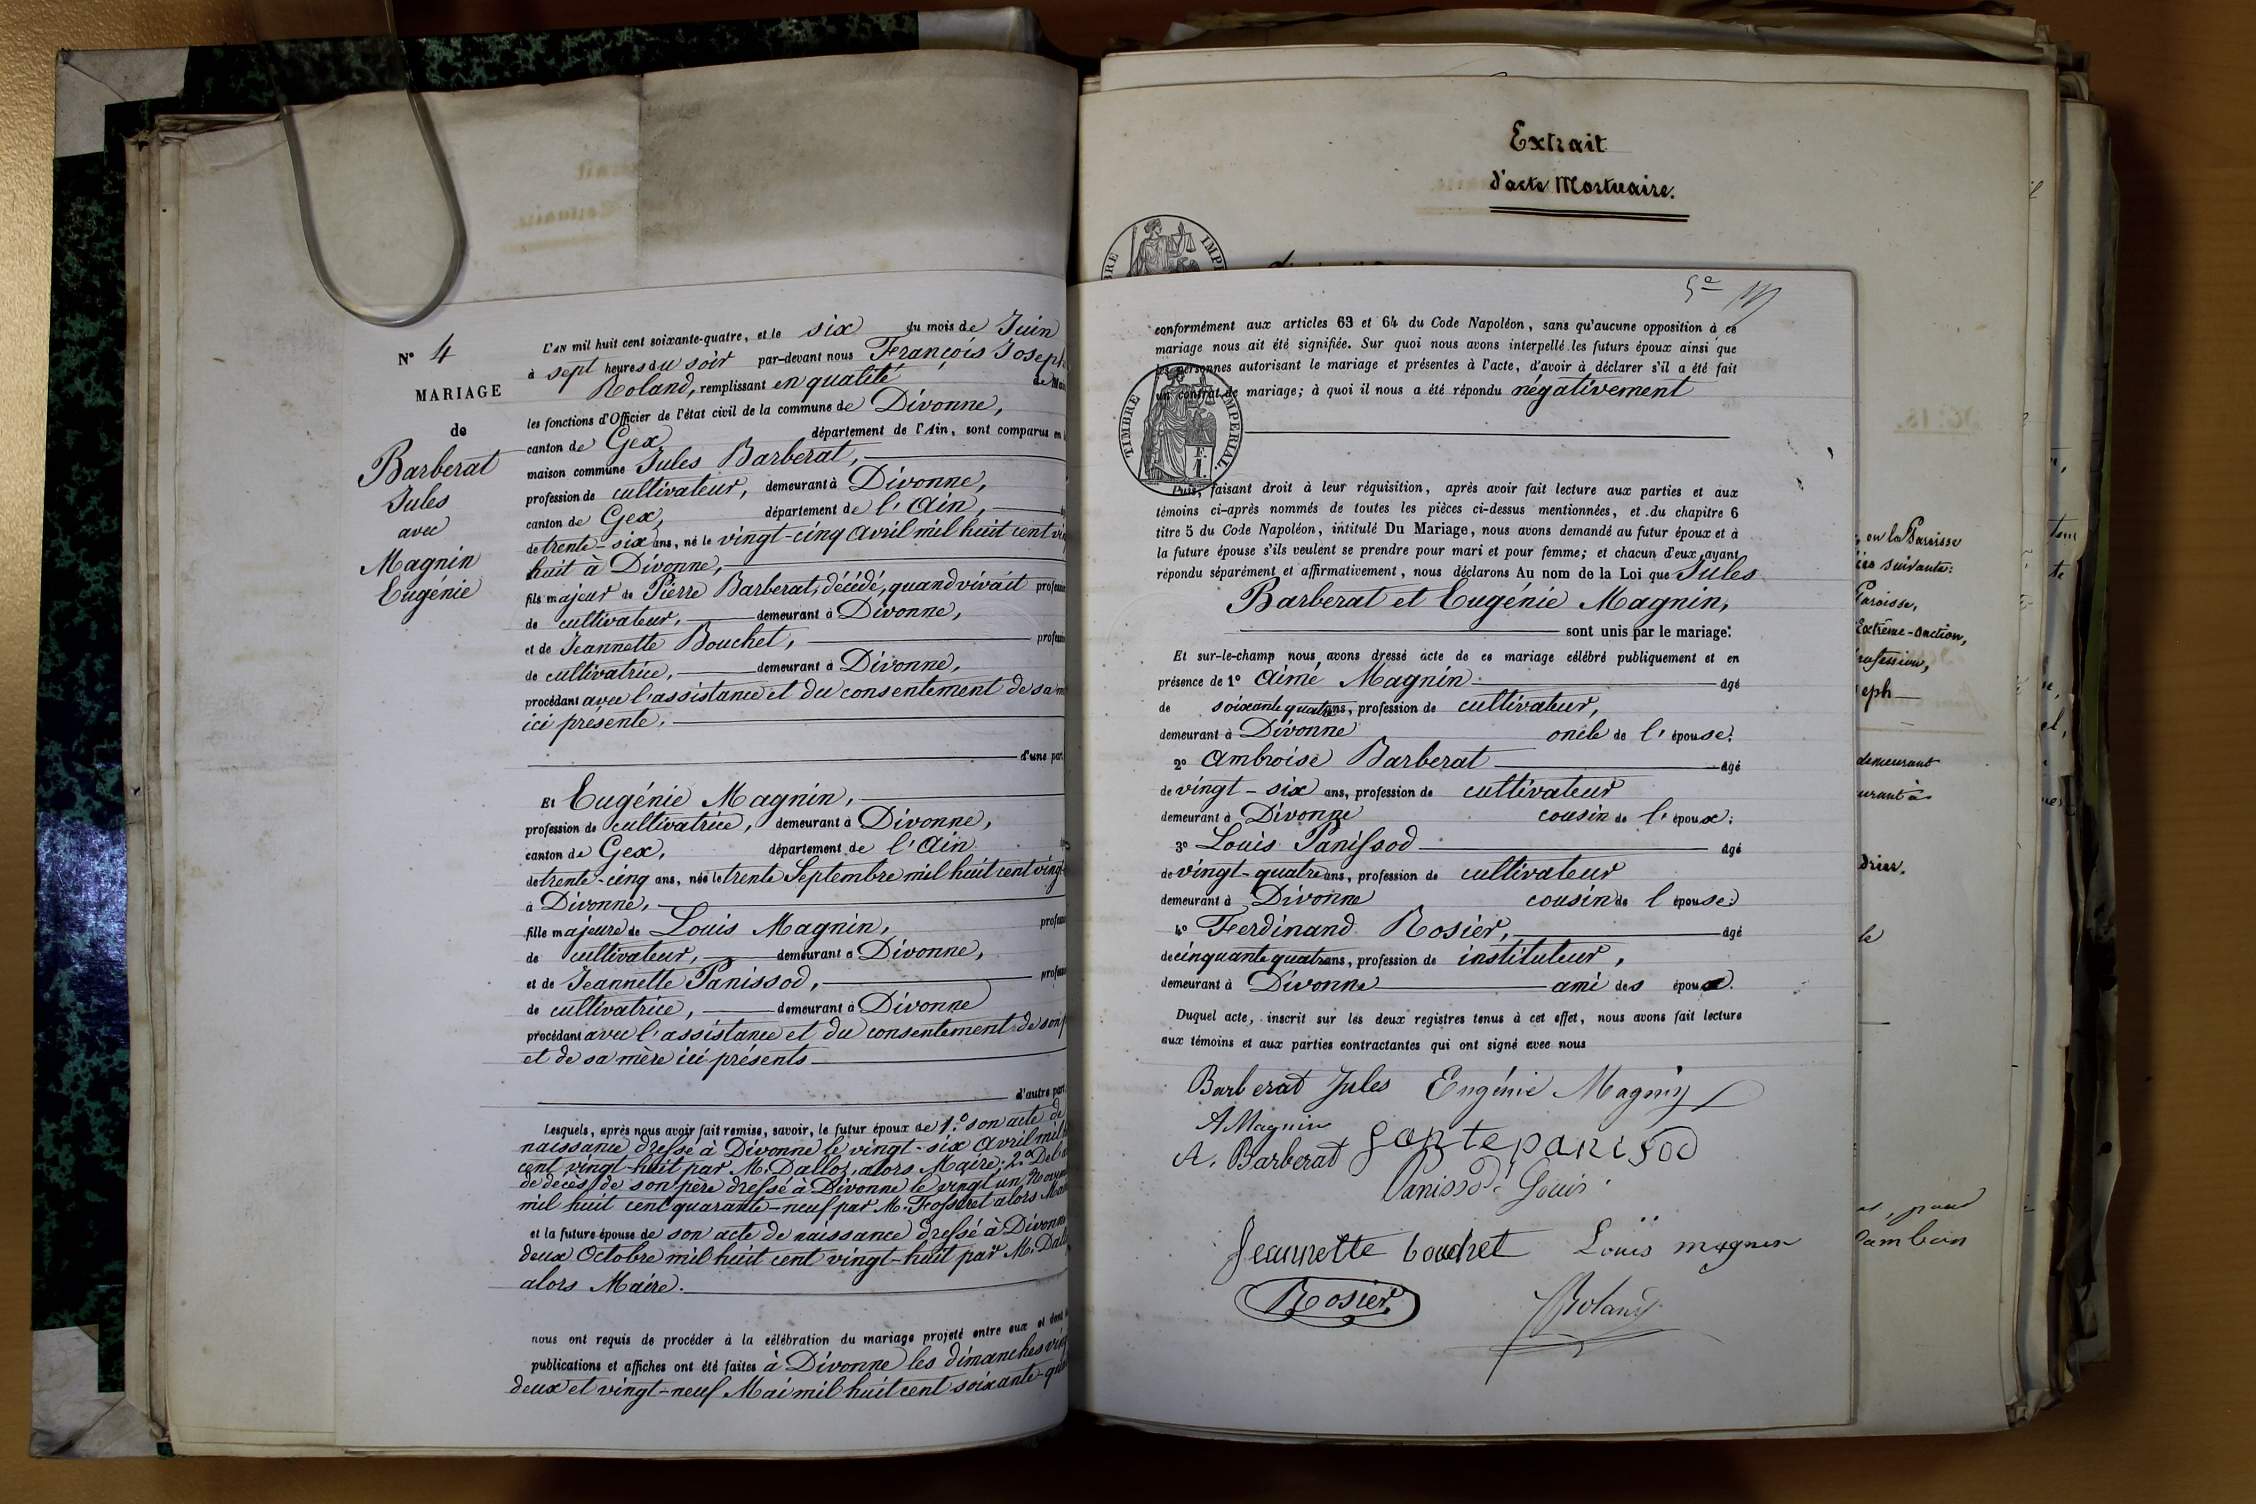 N° 4
MARIAGE
de
Barberat
Jules
avec
Magnin
Eugénie
L'AN mil huit cent soixante-quatre, et le six du mois de Juin
à sept heures du soir par-devant nous François Joseph
Roland, remplissant en qualité de
les fonctions d'Officier de l'état civil de la commune de Divonne,
canton de Gex département de l'Ain, sont comparus en
maison commune Jules Barberat,
profession de cultivateur, demeurant à Divonne,
canton de Gex, département de l'Ain,
de trente-six ans, né le vingt-cinq Avril mil huit cent
huit à Divonne,
fils majeur de Pierre Barberat, décédé, quand vivait
de cultivateur, demeurant à Divonne,
et de Jeannette Bouchet,
de cultivatrice, demeurant à Divonne,
procédant avec l'assistance et du consentement de sa
ici présente.
d'une part
Et Eugénie Magnin,
profession de cultivatrice, demeurant à Divonne,
canton de Gex, département de l'Ain
de trente-cinq ans, née le trente Septembre mil huit cent vingt
à Divonne,
fille majeure de Louis Magnin,
de cultivateur, demeurant à Divonne,
et de Jeannette Panissod,
de cultivatrice, demeurant à Divonne
procédant avec l'assistance et du consentement de son
et de sa mère ici présents
d'autre part
Lesquels, après nous avoir fait remise, savoir, le futur époux de 1.° son acte de
naissance dressé à Divonne le vingt-six Avril mil
cent vingt-huit par M. Dalloz, alors Maire; 2.°
de décès de son père dressé à Divonne le vingt un
mil huit cent quarante-neuf par M. alors
et la future épouse de son acte de naissance dressé à Divonne
deux Octobre mil huit cent vingt-huit par M.
alors Maire.
nous ont requis de procéder à la célébration du mariage projeté entre eux et dont
publications et affiches ont été faites à Divonne les dimanches
deux et vingt-neuf Mai mil huit cent soixante-
Extrait
d'acte Mortuaire.
conformément aux articles 63 et 64 du Code Napoléon, sans qu'aucune opposition à ce
mariage nous ait été signifiée. Sur quoi nous avons interpellé les futurs époux ainsi que
les personnes autorisant le mariage et présentes à l'acte, d'avoir à déclarer s'il a été fait
un contrat de mariage; à quoi il nous a été répondu négativement
TIMBRE IMPERIAL.
F.
1.
Puis, faisant droit à leur réquisition, après avoir fait lecture aux parties et aux
témoins ci-après nommés de toutes les pièces ci-dessus mentionnées, et du chapitre 6
titre 5 du Code Napoléon, intitulé Du Mariage, nous avons demandé au futur époux et à
la future épouse s'ils veulent se prendre pour mari et pour femme; et chacun d'eux ayant
répondu séparément et affirmativement, nous déclarons Au nom de la Loi que Jules
Barberat et Eugénie Magnin,
sont unis par le mariage.
Et sur-le-champ nous avons dressé acte de ce mariage célébré publiquement et en
présence de 1° Aimé Magnin âgé
de soixante quatre ans, profession de cultivateur,
demeurant à Divonne oncle de l'épouse.
2° Ambroise Barberat âgé
de vingt-six ans, profession de cultivateur
demeurant à Divonne cousin de l'époux.
3° Louis Panissod âgé
de vingt-quatre ans, profession de cultivateur
demeurant à Divonne cousin de l'épouse
4° Ferdinand Rosier, âgé
de cinquante quatre ans, profession de instituteur,
demeurant à Divonne ami des époux.
Duquel acte, inscrit sur les deux registres tenus à cet effet, nous avons fait lecture
aux témoins et aux parties contractantes qui ont signé avec nous
Barberat Jules Eugénie Magnin
A Magnin
A. Barberat
Panissod Louis
Jeannette bouchet Louis magnin
Rosier
Roland
en la Paroisse
suivante:
Paroisse,
Extrême-onction,
demeurant